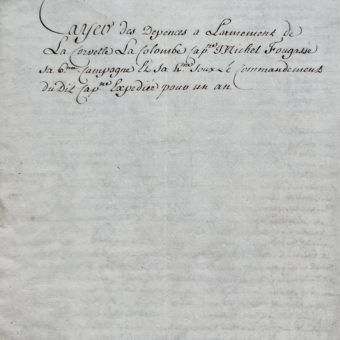 Cayer des Depences a Larmement de
La Corvette La Colombe Cap.ne Michel Fougasse
sa 6.me Campagne Et sa 4.me Soux Le Commandement
du Dit Cap.ne Expedié pour un an